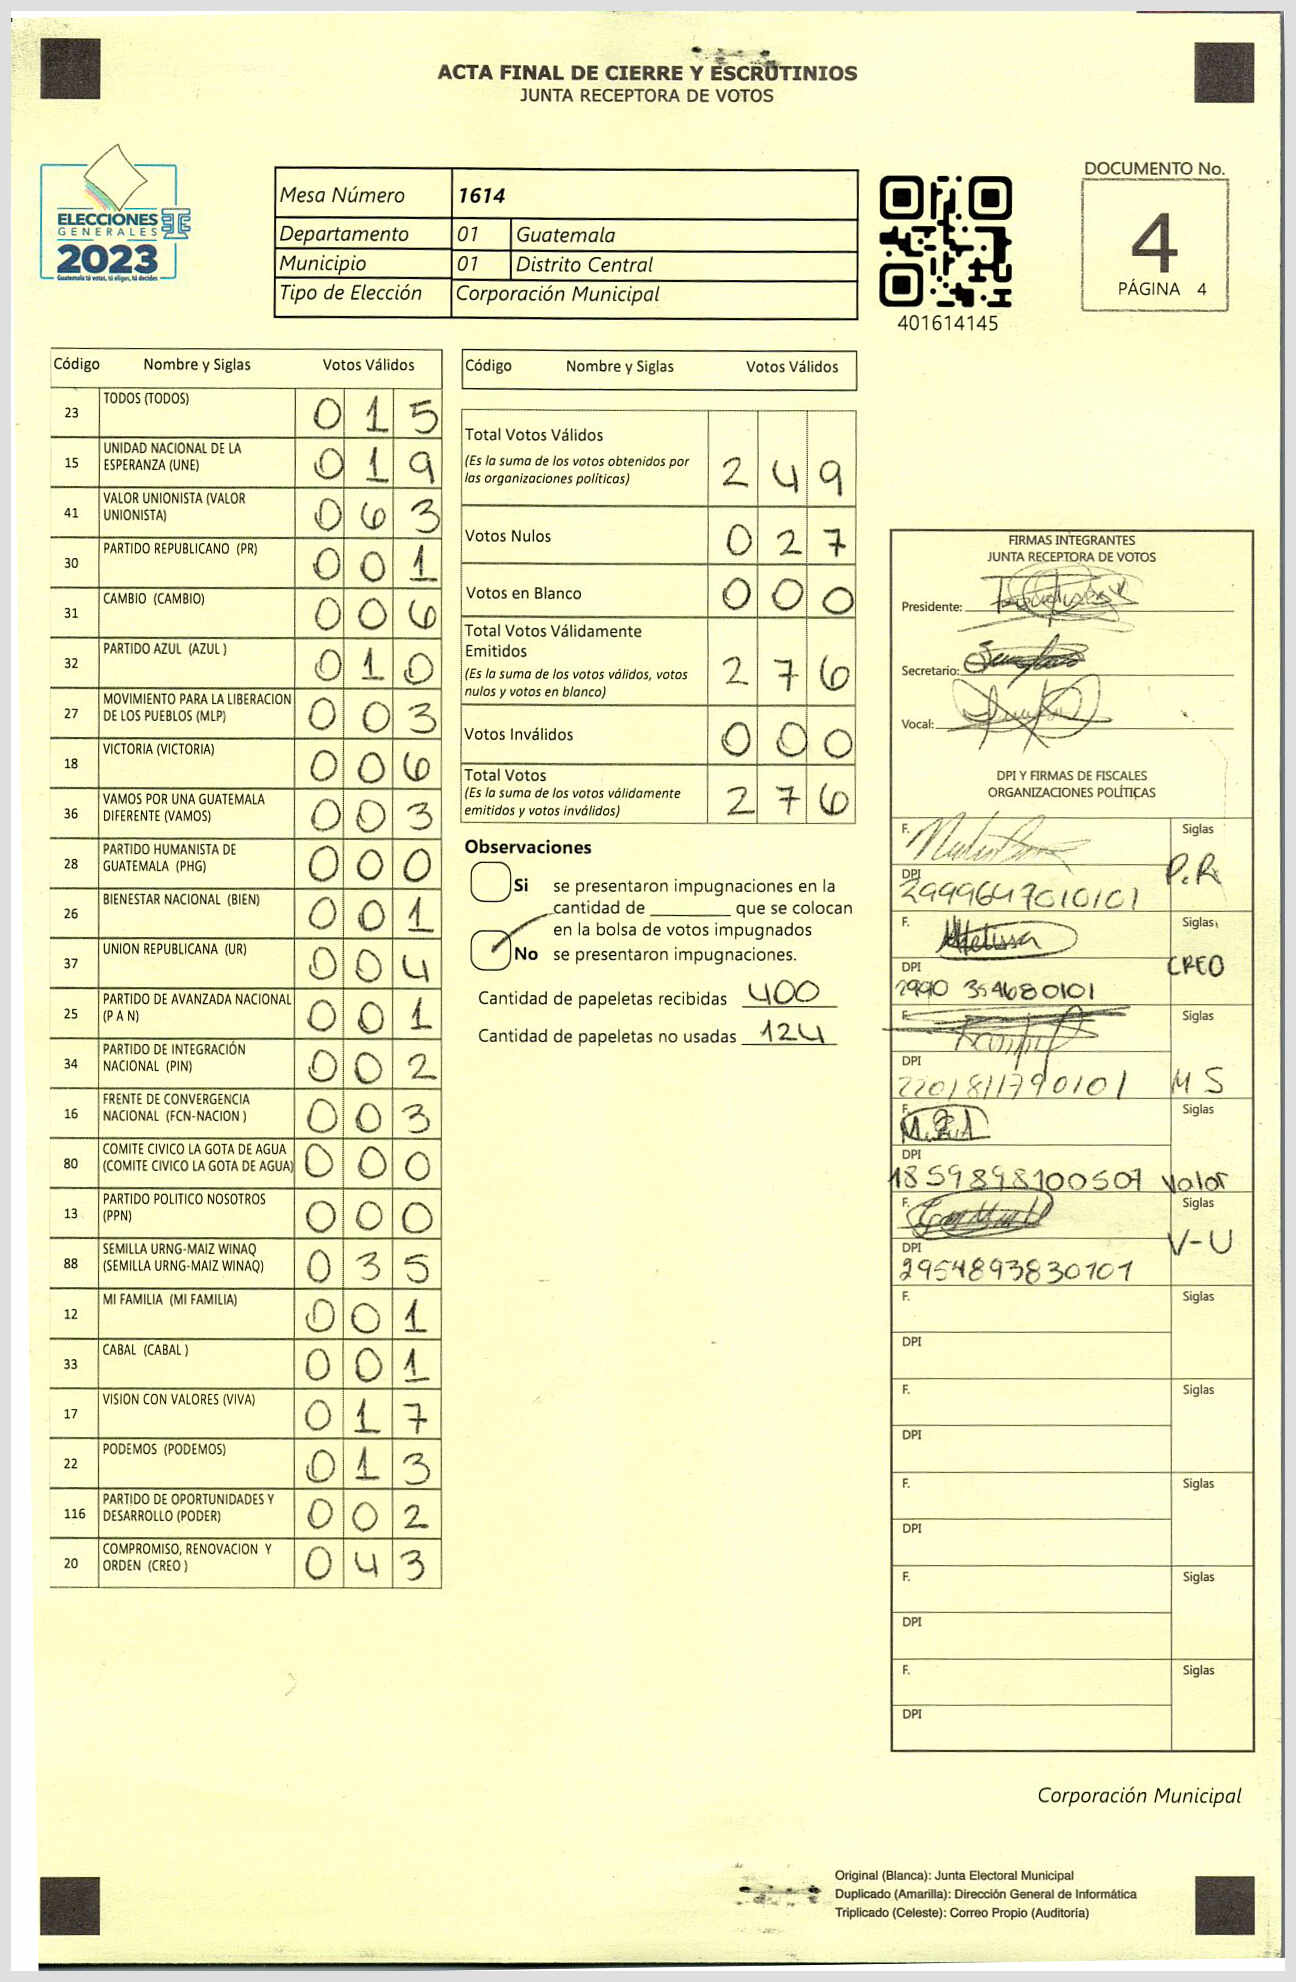 ACTA FINAL DE CIERRE Y ESCRUTINIOS
JUNTA RECEPTORA DE VOTOS
ELECCIONES
GENERALES
2023
Guatemala tú votas, tú eliges, tú decides
Mesa Número 1614
Departamento 01 Guatemala
Municipio 01 Distrito Central
Tipo de Elección Corporación Municipal
401614145
DOCUMENTO No.
4
PÁGINA 4
Código Nombre y Siglas Votos Válidos
23 TODOS (TODOS) 0 1 5
15 UNIDAD NACIONAL DE LA
ESPERANZA (UNE) 0 1 9
41 VALOR UNIONISTA (VALOR
UNIONISTA) 0 6 3
30 PARTIDO REPUBLICANO (PR) 0 0 1
31 CAMBIO (CAMBIO) 0 0 6
32 PARTIDO AZUL (AZUL ) 0 1 0
27 MOVIMIENTO PARA LA LIBERACION
DE LOS PUEBLOS (MLP) 0 0 3
18 VICTORIA (VICTORIA) 0 0 6
36 VAMOS POR UNA GUATEMALA
DIFERENTE (VAMOS) 0 0 3
28 PARTIDO HUMANISTA DE
GUATEMALA (PHG) 0 0 0
26 BIENESTAR NACIONAL (BIEN) 0 0 1
37 UNION REPUBLICANA (UR) 0 0 4
25 PARTIDO DE AVANZADA NACIONAL
(P A N) 0 0 1
34 PARTIDO DE INTEGRACIÓN
NACIONAL (PIN) 0 0 2
16 FRENTE DE CONVERGENCIA
NACIONAL (FCN-NACION ) 0 0 3
80 COMITE CIVICO LA GOTA DE AGUA
(COMITE CIVICO LA GOTA DE AGUA) 0 0 0
13 PARTIDO POLITICO NOSOTROS
(PPN) 0 0 0
88 SEMILLA URNG-MAIZ WINAQ
(SEMILLA URNG-MAIZ WINAQ) 0 3 5
12 MI FAMILIA (MI FAMILIA) 0 0 1
33 CABAL (CABAL ) 0 0 1
17 VISION CON VALORES (VIVA) 0 1 7
22 PODEMOS (PODEMOS) 0 1 3
116 PARTIDO DE OPORTUNIDADES Y
DESARROLLO (PODER) 0 0 2
20 COMPROMISO, RENOVACION Y
ORDEN (CREO ) 0 4 3
Código Nombre y Siglas Votos Válidos
Total Votos Válidos
(Es la suma de los votos obtenidos por
las organizaciones políticas) 2 4 9
Votos Nulos 0 2 7
Votos en Blanco 0 0 0
Total Votos Válidamente
Emitidos
(Es la suma de los votos válidos, votos
nulos y votos en blanco) 2 7 6
Votos Inválidos 0 0 0
Total Votos
(Es la suma de los votos válidamente
emitidos y votos inválidos) 2 7 6
Observaciones
Si se presentaron impugnaciones en la
cantidad de ________ que se colocan
en la bolsa de votos impugnados
No se presentaron impugnaciones.
Cantidad de papeletas recibidas 400
Cantidad de papeletas no usadas 124
FIRMAS INTEGRANTES
JUNTA RECEPTORA DE VOTOS
Presidente:
Secretario:
Vocal:
DPI Y FIRMAS DE FISCALES
ORGANIZACIONES POLÍTICAS
F. Siglas
P.R
DPI
2999647010101
F. Melissa Siglas
CREO
DPI
2990 354680101
F. Siglas
DPI
2201811790101 M S
F. Siglas
DPI
1859898100507 Valor
F. Siglas
V-U
DPI
2954893830101
F. Siglas
DPI
F. Siglas
DPI
F. Siglas
DPI
F. Siglas
DPI
F. Siglas
DPI
Corporación Municipal
Original (Blanca): Junta Electoral Municipal
Duplicado (Amarilla): Dirección General de Informática
Triplicado (Celeste): Correo Propio (Auditoría)